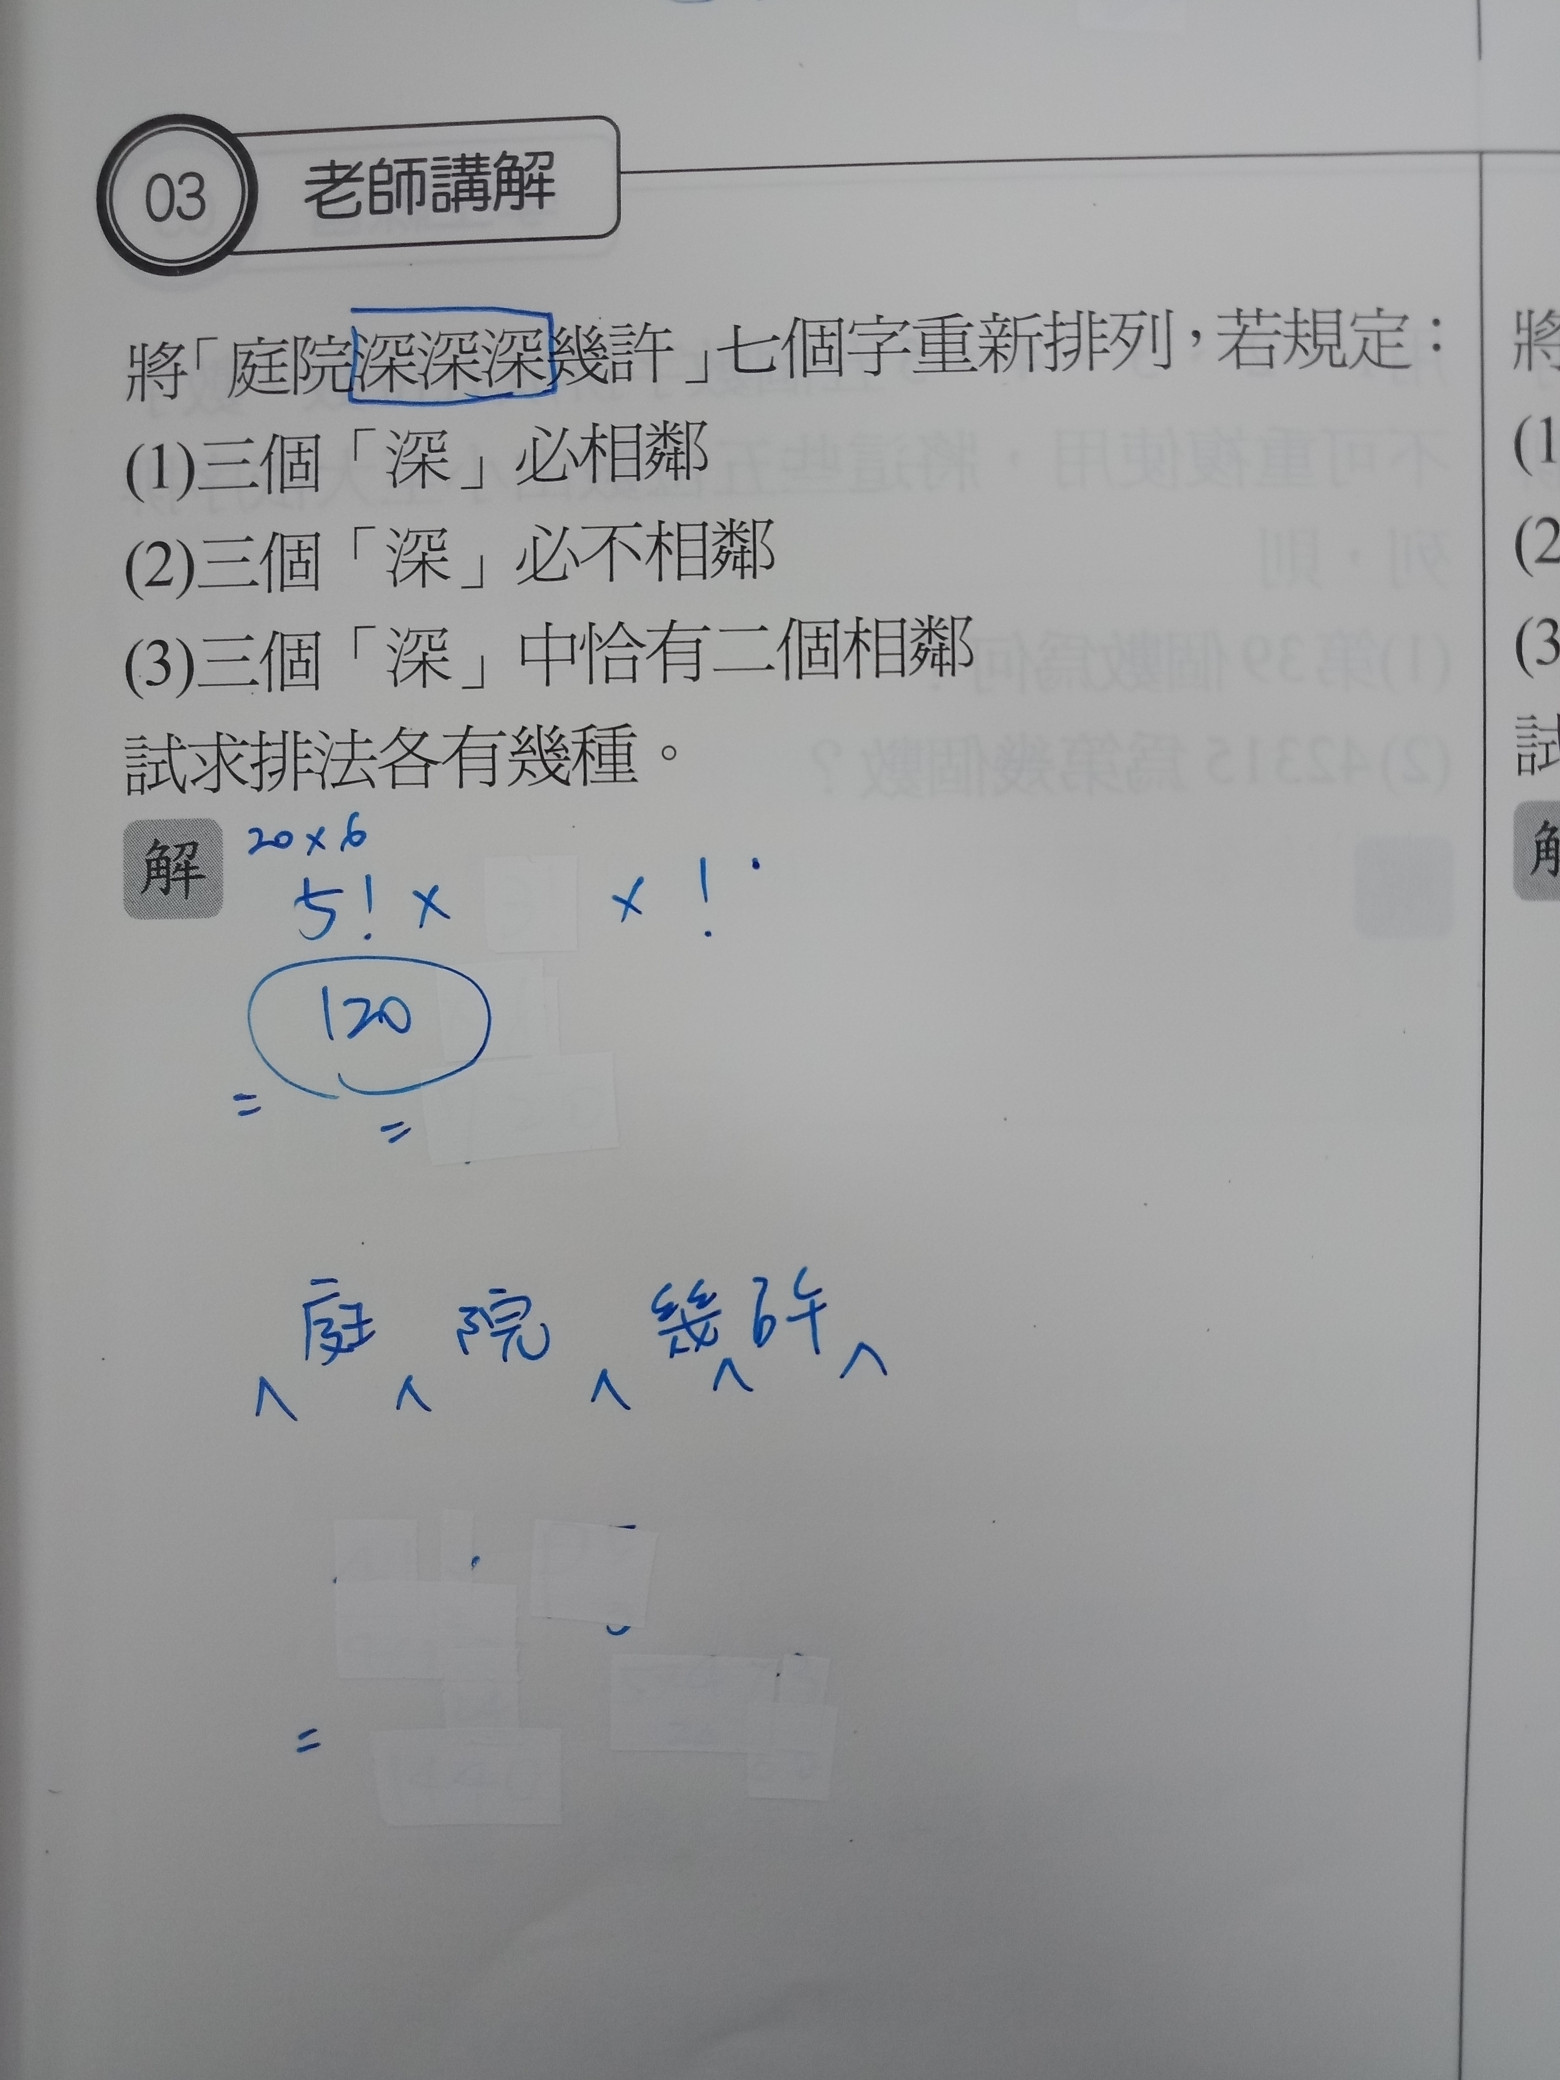 03 老師講解
將「庭院深深深幾許」七個字重新排列，若規定：
(1)三個「深」必相鄰
(2)三個「深」必不相鄰
(3)三個「深」中恰有二個相鄰
試求排法各有幾種。
解 20×6
5! × × !
120
=
=
庭 院 幾許
^ ^ ^ ^ ^
=
將
(1
(2
(3
試
解